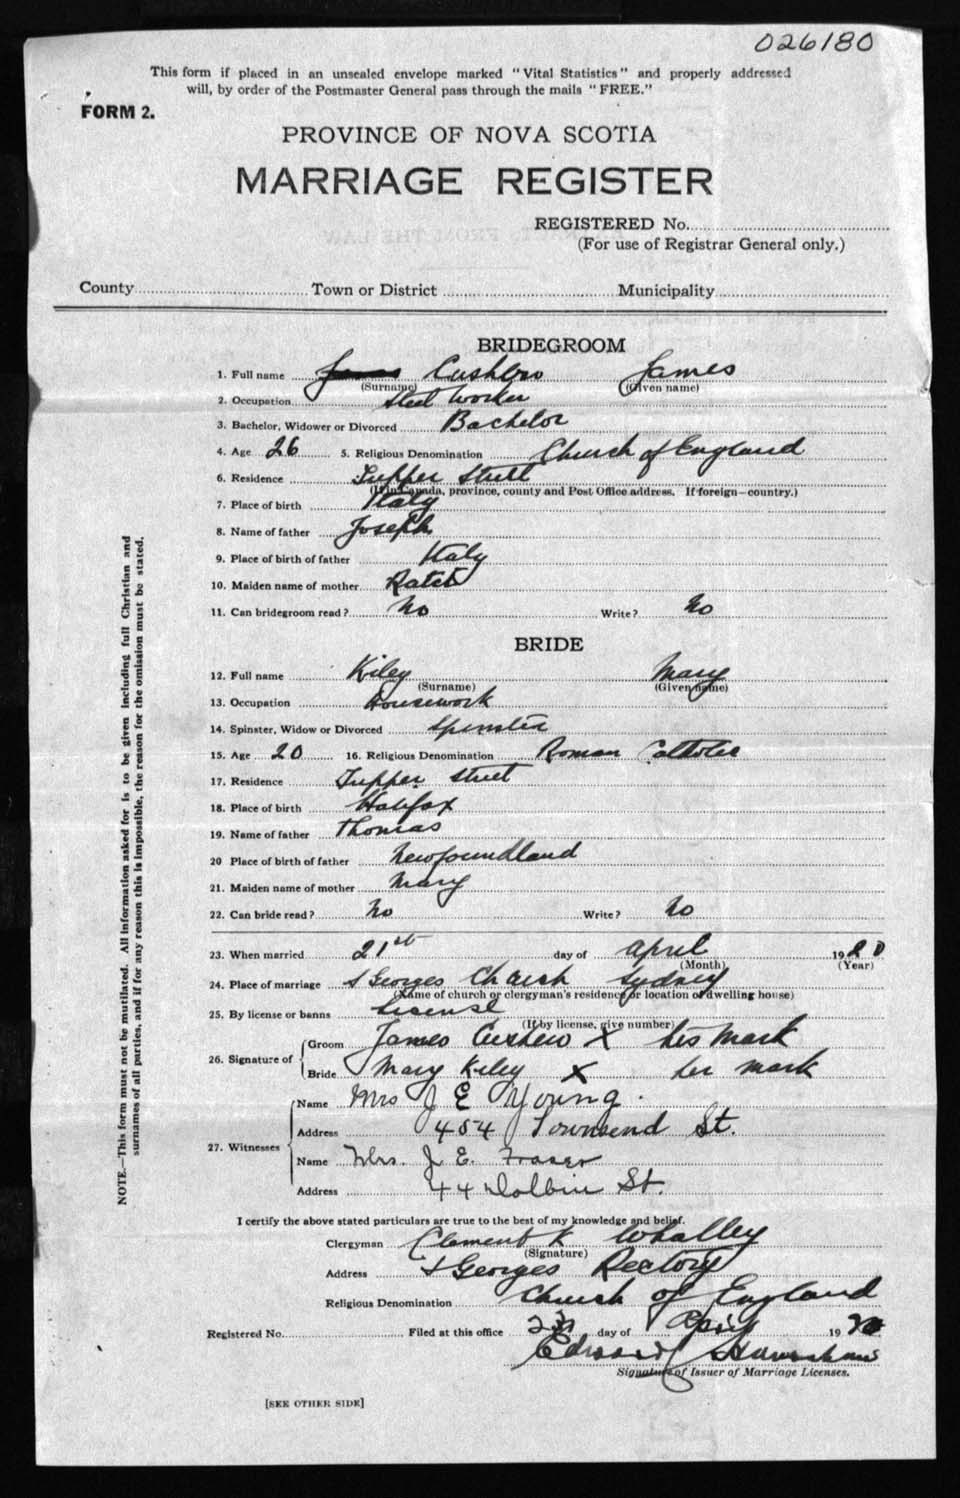 026180
This form if placed in an unsealed envelope marked "Vital Statistics" and properly addressed
will, by order of the Postmaster General pass through the mails "FREE."
FORM 2.
PROVINCE OF NOVA SCOTIA
MARRIAGE REGISTER
REGISTERED No.
(For use of Registrar General only.)
County Town or District Municipality
BRIDEGROOM
1. Full name James
(Surname) (Given name)
2. Occupation Steel Worker
3. Bachelor, Widower or Divorced Bachelor
4. Age 26 5. Religious Denomination Church of England
6. Residence Tupper Street
(If in Canada, province, county and Post Office address. If foreign—country.)
7. Place of birth Italy
8. Name of father Joseph
9. Place of birth of father Italy
10. Maiden name of mother
11. Can bridegroom read? No Write? No
BRIDE
12. Full name Kiley Mary
(Surname) (Given name)
13. Occupation Housework
14. Spinster, Widow or Divorced Spinster
15. Age 20 16. Religious Denomination Roman Catholic
17. Residence Tupper Street
18. Place of birth Halifax
19. Name of father Thomas
20 Place of birth of father Newfoundland
21. Maiden name of mother Mary
22. Can bride read? No Write? No
23. When married 21st day of April 1920
(Month) (Year)
24. Place of marriage St Georges Church Sydney
(Name of church or clergyman's residence or location of dwelling house)
25. By license or banns License
(If by license, give number)
26. Signature of
Groom James X his mark
Bride Mary Kiley X her mark
27. Witnesses
Name Mrs J E Young
Address 454 Townsend St.
Name Mrs. J. E. Fraser
Address 44 St.
I certify the above stated particulars are true to the best of my knowledge and belief.
Clergyman Clement K Whalley
(Signature)
Address St Georges Rectory
Religious Denomination Church of England
Registered No. Filed at this office day of April 1920
Edward
Signature of Issuer of Marriage Licenses.
[SEE OTHER SIDE]
NOTE.—This form must not be mutilated. All information asked for is to be given including full Christian and
surnames of all parties, and if for any reason this is impossible, the reason for the omission must be stated.